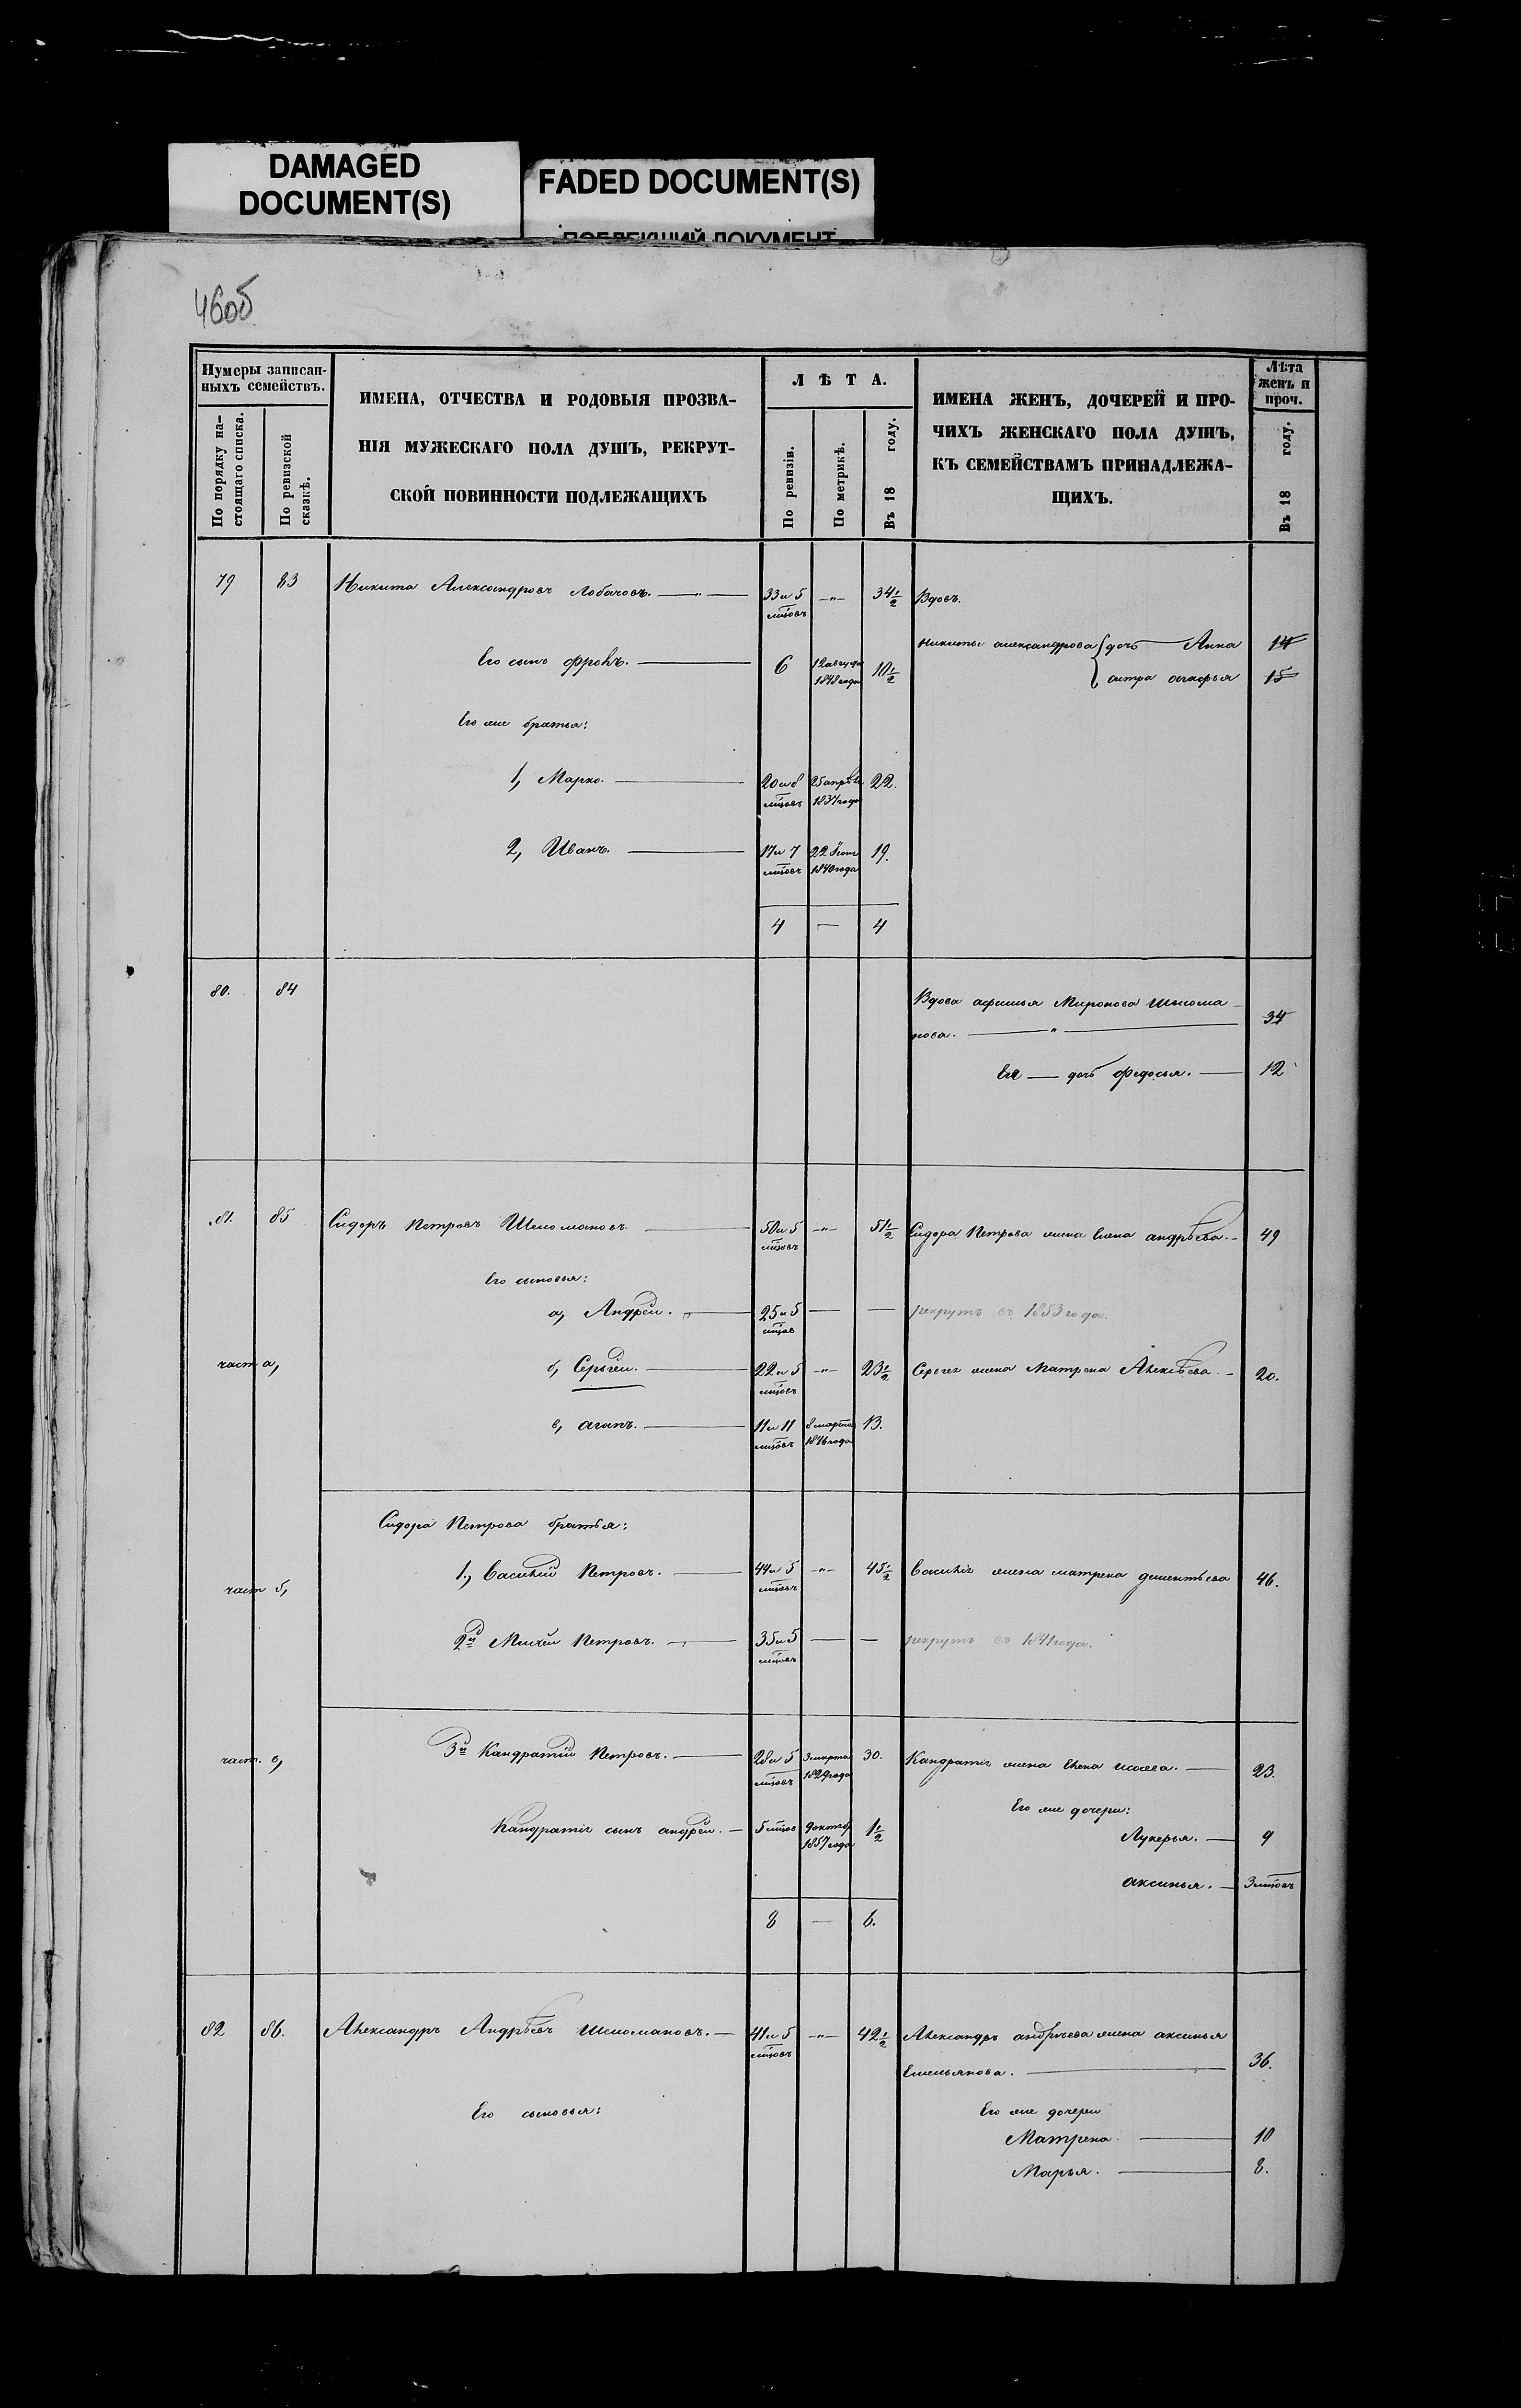 DAMAGED
DOCUMENT(S)
FADED DOCUMENT(S)
ПОБЛЕКШИЙ ДОКУМЕНТ
46об
Нумеры записан-
ныхъ семействъ.
По порядку на-
стоящаго списка.
По ревизской
сказкѣ.
ИМЕНА, ОТЧЕСТВА И РОДОВЫЯ ПРОЗВА-
НІЯ МУЖЕСКАГО ПОЛА ДУШЪ, РЕКРУТ-
СКОЙ ПОВИННОСТИ ПОДЛЕЖАЩИХЪ
ЛѢТА.
По ревизіи.
По метрикѣ.
Въ 18 году.
ИМЕНА ЖЕНЪ, ДОЧЕРЕЙ И ПРО-
ЧИХЪ ЖЕНСКАГО ПОЛА ДУШЪ,
КЪ СЕМЕЙСТВАМЪ ПРИНАДЛЕЖА-
ЩИХЪ.
Лѣта
женъ и
проч.
Въ 18 году.
79 83 Никита Александровъ Лобачовъ. — " — 33 и 5 мцовъ — " — 34 1/2 Вдовъ.
Никиты александрова { дочь — Анна 14
Его сынъ фролъ. — 6 12 августа 1848 года 10 1/2
{ сестра 15
Его же братья:
1, Марко. — 20 и 8 мцовъ 25 апрѣля 1837 года 22.
2, Иванъ. — 17 и 7 мцовъ 22 1840 года 19.
4 — 4
80. 84 Вдова афимья Миронова Шеломa-
нова. — " — 34
Ея — дочь федосья. — 12
81. 85 Сидоръ Петровъ Шеломановъ — 50 и 5 мцовъ — " — 51 1/2 Сидора Петрова жена Елена андрѣева. — 49
Его сыновья:
а, Андрей. — 25 и 5 мцов — — рекрутъ съ 1853 года.
част а, б, Сергѣй. — 22 и 5 мцовъ — " — 23 1/2 Сергея жена Матрена Алексѣева. — 20.
в, агапъ. — 11 и 11 мцовъ 8 марта 1846 года 13.
Сидора Петрова братья:
част б, 1., Василий Петровъ. — 44 и 5 мцовъ — " — 45 1/2 Василія жена матрена дементьева 46.
2й Михей Петровъ. — 35 и 5 мцовъ — — рекрутъ съ 1841 года.
част. в, 3й Кандратий Петровъ. — 28 и 5 мцовъ 3 марта 1829 года 30. Кандратія жена Елена исаева. — 23.
Его же дочери:
Кандратія сынъ андрей. — 5 мцов 9 октяб 1857 года 1 1/2 Лукерья. — 9
аксинья. — 3 мцовъ
8 — 6.
82 86. Александръ Андрѣевъ Шеломановъ. — 41 и 5 мцовъ — " — 42 1/2 Александръ андрѣева жена аксинья
Емельянова. — 36.
Его сыновья: Его же дочери
Матрена — 10
Марья. — 8.